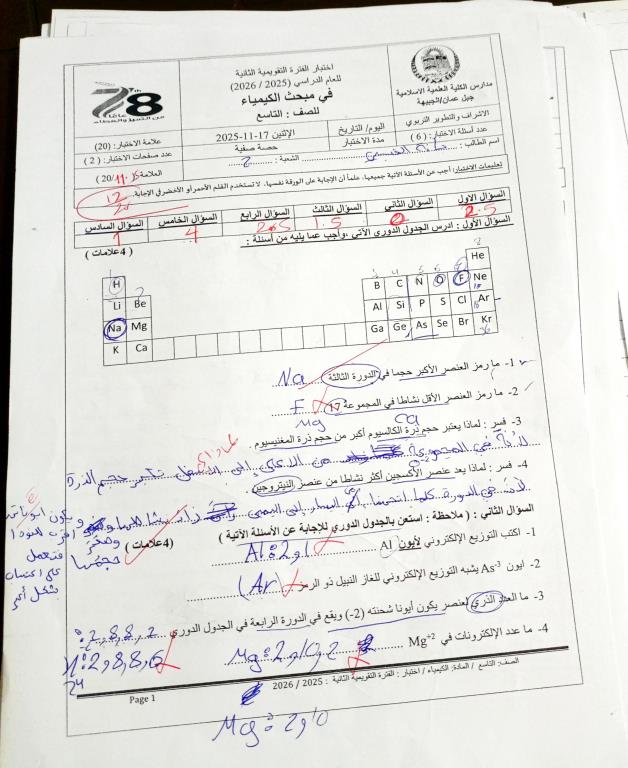 مدارس الكلية العلمية الاسلامية
جبل عمان/الجبيهة
اختبار الفترة التقويمية الثانية
للعام الدراسي (2025 / 2026)
في مبحث الكيمياء
للصف : التاسع
78th
عامًا
من التميز والعطاء
الاشراف والتطوير التربوي
اليوم/ التاريخ
الإثنين 17-11-2025
عدد أسئلة الاختبار: ( 6 )
مدة الاختبار
حصة صفية
علامة الاختبار: (20)
اسم الطالب :
الشعبة :
عدد صفحات الاختبار: ( 2 )
العلامة: 11.5 /20)
تعليمات الاختبار: أجب عن الأسئلة الآتية جميعها، علماً أن الإجابة على الورقة نفسها. لا تستخدم القلم الأحمر أو الأخضر في الإجابة.
12/20
السؤال الأول السؤال الثاني السؤال الثالث السؤال الرابع السؤال الخامس السؤال السادس
2.5 1.5 2.5 4 1
السؤال الأول : ادرس الجدول الدوري الآتي ،وأجب عما يليه من أسئلة :
( 4علامات )
H He
Li Be B C N O F Ne
Na Mg Al Si P S Cl Ar
K Ca Ga Ge As Se Br Kr
1- ما رمز العنصر الأكبر حجما في الدورة الثالثة Na
2- ما رمز العنصر الأقل نشاطا في المجموعة 17 F
Mg Ca
3- فسر : لماذا يعتبر حجم ذرة الكالسيوم أكبر من حجم ذرة المغنيسيوم .
لأنه في المجموعة من الأعلى الى الأسفل تكبر حجم الذرة
4- فسر : لماذا يعد عنصر الأكسجين أكثر نشاطا من عنصر النيتروجين .
لأنه في الدورة كلما اتجهنا من اليسار إلى اليمين زاد نشاطها
حجمها
السؤال الثاني : ( ملاحظة : استعن بالجدول الدوري للإجابة عن الأسئلة الآتية )
(4علامات )
1- اكتب التوزيع الإلكتروني لأيون Al
2- ايون As-3 يشبه التوزيع الإلكتروني للغاز النبيل ذو الرمز (Ar
3- ما العدد الذري لعنصر يكون أيونا شحنته (2-) ويقع في الدورة الرابعة في الجدول الدوري
: 2,8,8,2
4- ما عدد الإلكترونات في Mg+2 Mg: 2,10,2
2,8,8,6
24
الصف: التاسع / المادة: الكيمياء / اختبار : الفترة التقويمية الثانية : 2025 / 2026
Page 1
Mg: 2,10